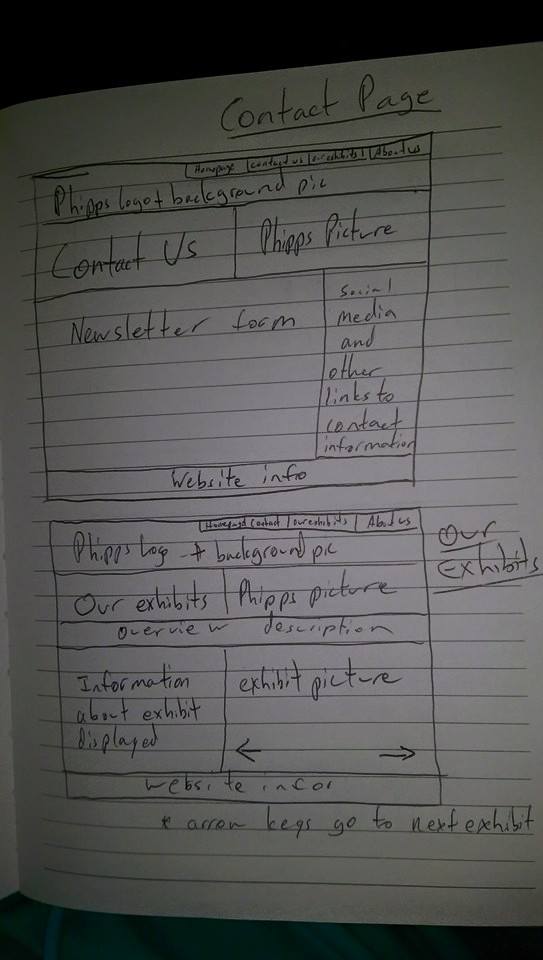 Contact Page
Homepage | contact us | our exhibits | About us
Phipps logo + background pic
Contact Us | Phipps Picture
Newsletter form
social
media
and
other
links to
contact
information
Website info
Homepage | Contact | our exhibits | About us
Phipps logo + background pic
Our
Exhibits
Our exhibits | Phipps picture
overview description
Information
about exhibit
displayed
exhibit picture
← →
website infor
* arrow keys go to next exhibit